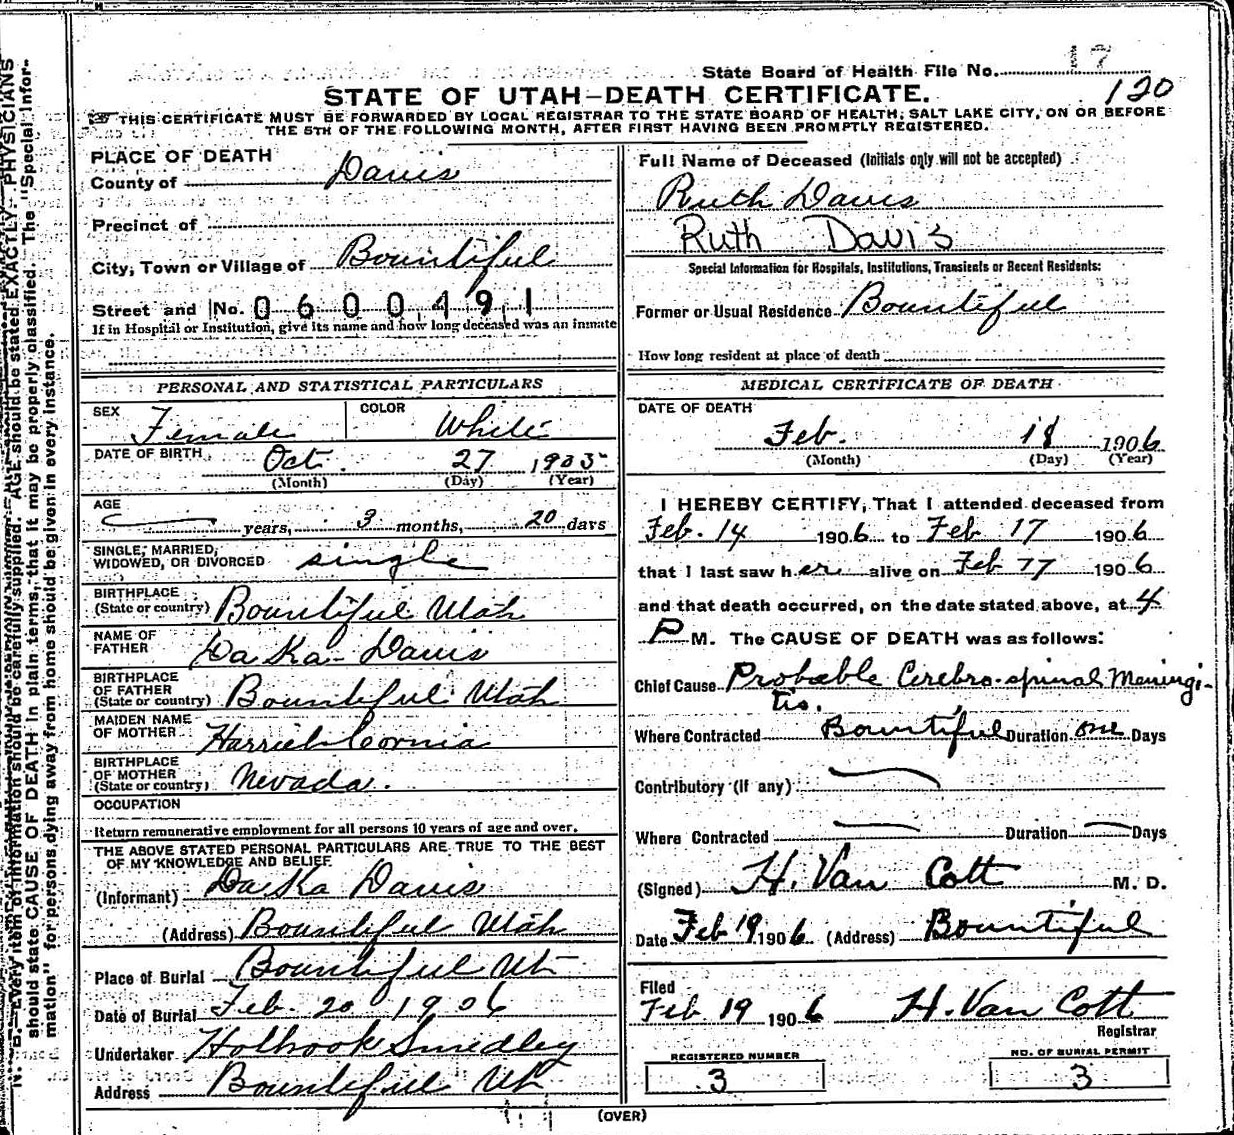 State Board of Health File No. 17
120
STATE OF UTAH—DEATH CERTIFICATE.
THIS CERTIFICATE MUST BE FORWARDED BY LOCAL REGISTRAR TO THE STATE BOARD OF HEALTH, SALT LAKE CITY, ON OR BEFORE
THE 5TH OF THE FOLLOWING MONTH, AFTER FIRST HAVING BEEN PROMPTLY REGISTERED.
PLACE OF DEATH
County of Davis
Precinct of
City, Town or Village of Bountiful
Street and No. 0600491
If in Hospital or Institution, give its name and how long deceased was an inmate
Full Name of Deceased (Initials only will not be accepted)
Ruth Davis
Ruth Davis
Special Information for Hospitals, Institutions, Transients or Recent Residents:
Former or Usual Residence Bountiful
How long resident at place of death
PERSONAL AND STATISTICAL PARTICULARS
SEX Female COLOR White
DATE OF BIRTH Oct. 27 1905
(Month) (Day) (Year)
AGE
years, 3 months, 20 days
SINGLE, MARRIED,
WIDOWED, OR DIVORCED single
BIRTHPLACE
(State or country) Bountiful Utah
NAME OF
FATHER Da Ka Davis
BIRTHPLACE
OF FATHER
(State or country) Bountiful Utah
MAIDEN NAME
OF MOTHER Harriet Coornia
BIRTHPLACE
OF MOTHER
(State or country) Nevada.
OCCUPATION
Return remunerative employment for all persons 10 years of age and over.
THE ABOVE STATED PERSONAL PARTICULARS ARE TRUE TO THE BEST
OF MY KNOWLEDGE AND BELIEF
(Informant) Da Ka Davis
(Address) Bountiful Utah
Place of Burial Bountiful Ut
Date of Burial Feb. 20 1906
Undertaker Holbrook Smedley
Address Bountiful Ut
MEDICAL CERTIFICATE OF DEATH
DATE OF DEATH
Feb. 18 1906
(Month) (Day) (Year)
I HEREBY CERTIFY, That I attended deceased from
Feb. 14 1906 to Feb 17 1906
that I last saw her alive on Feb 17 1906
and that death occurred, on the date stated above, at 4
P M. The CAUSE OF DEATH was as follows:
Chief Cause Probable Cerebro-spinal Meningi-
tis.
Where Contracted Bountiful Duration one Days
Contributory (if any)
Where Contracted Duration Days
(Signed) H. Van Cott M. D.
Date Feb 19 1906 (Address) Bountiful
Filed
Feb 19 1906 H. Van Cott
Registrar
REGISTERED NUMBER
3
NO. OF BURIAL PERMIT
3
(OVER)
N. B. Every item of information should be carefully supplied. AGE should be stated EXACTLY. PHYSICIANS
should state CAUSE OF DEATH in plain terms, that it may be properly classified. The "Special Infor-
mation" for persons dying away from home should be given in every instance.